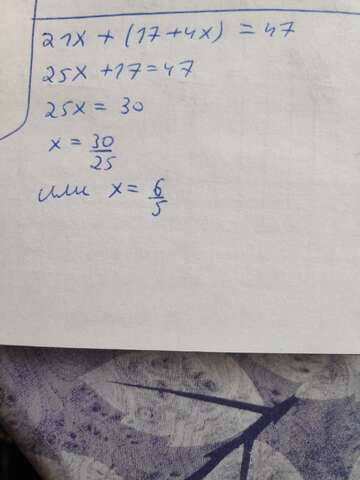 21x + (17 + 4x) = 47
25x + 17 = 47
25x = 30
x = 30/25
или x = 6/5